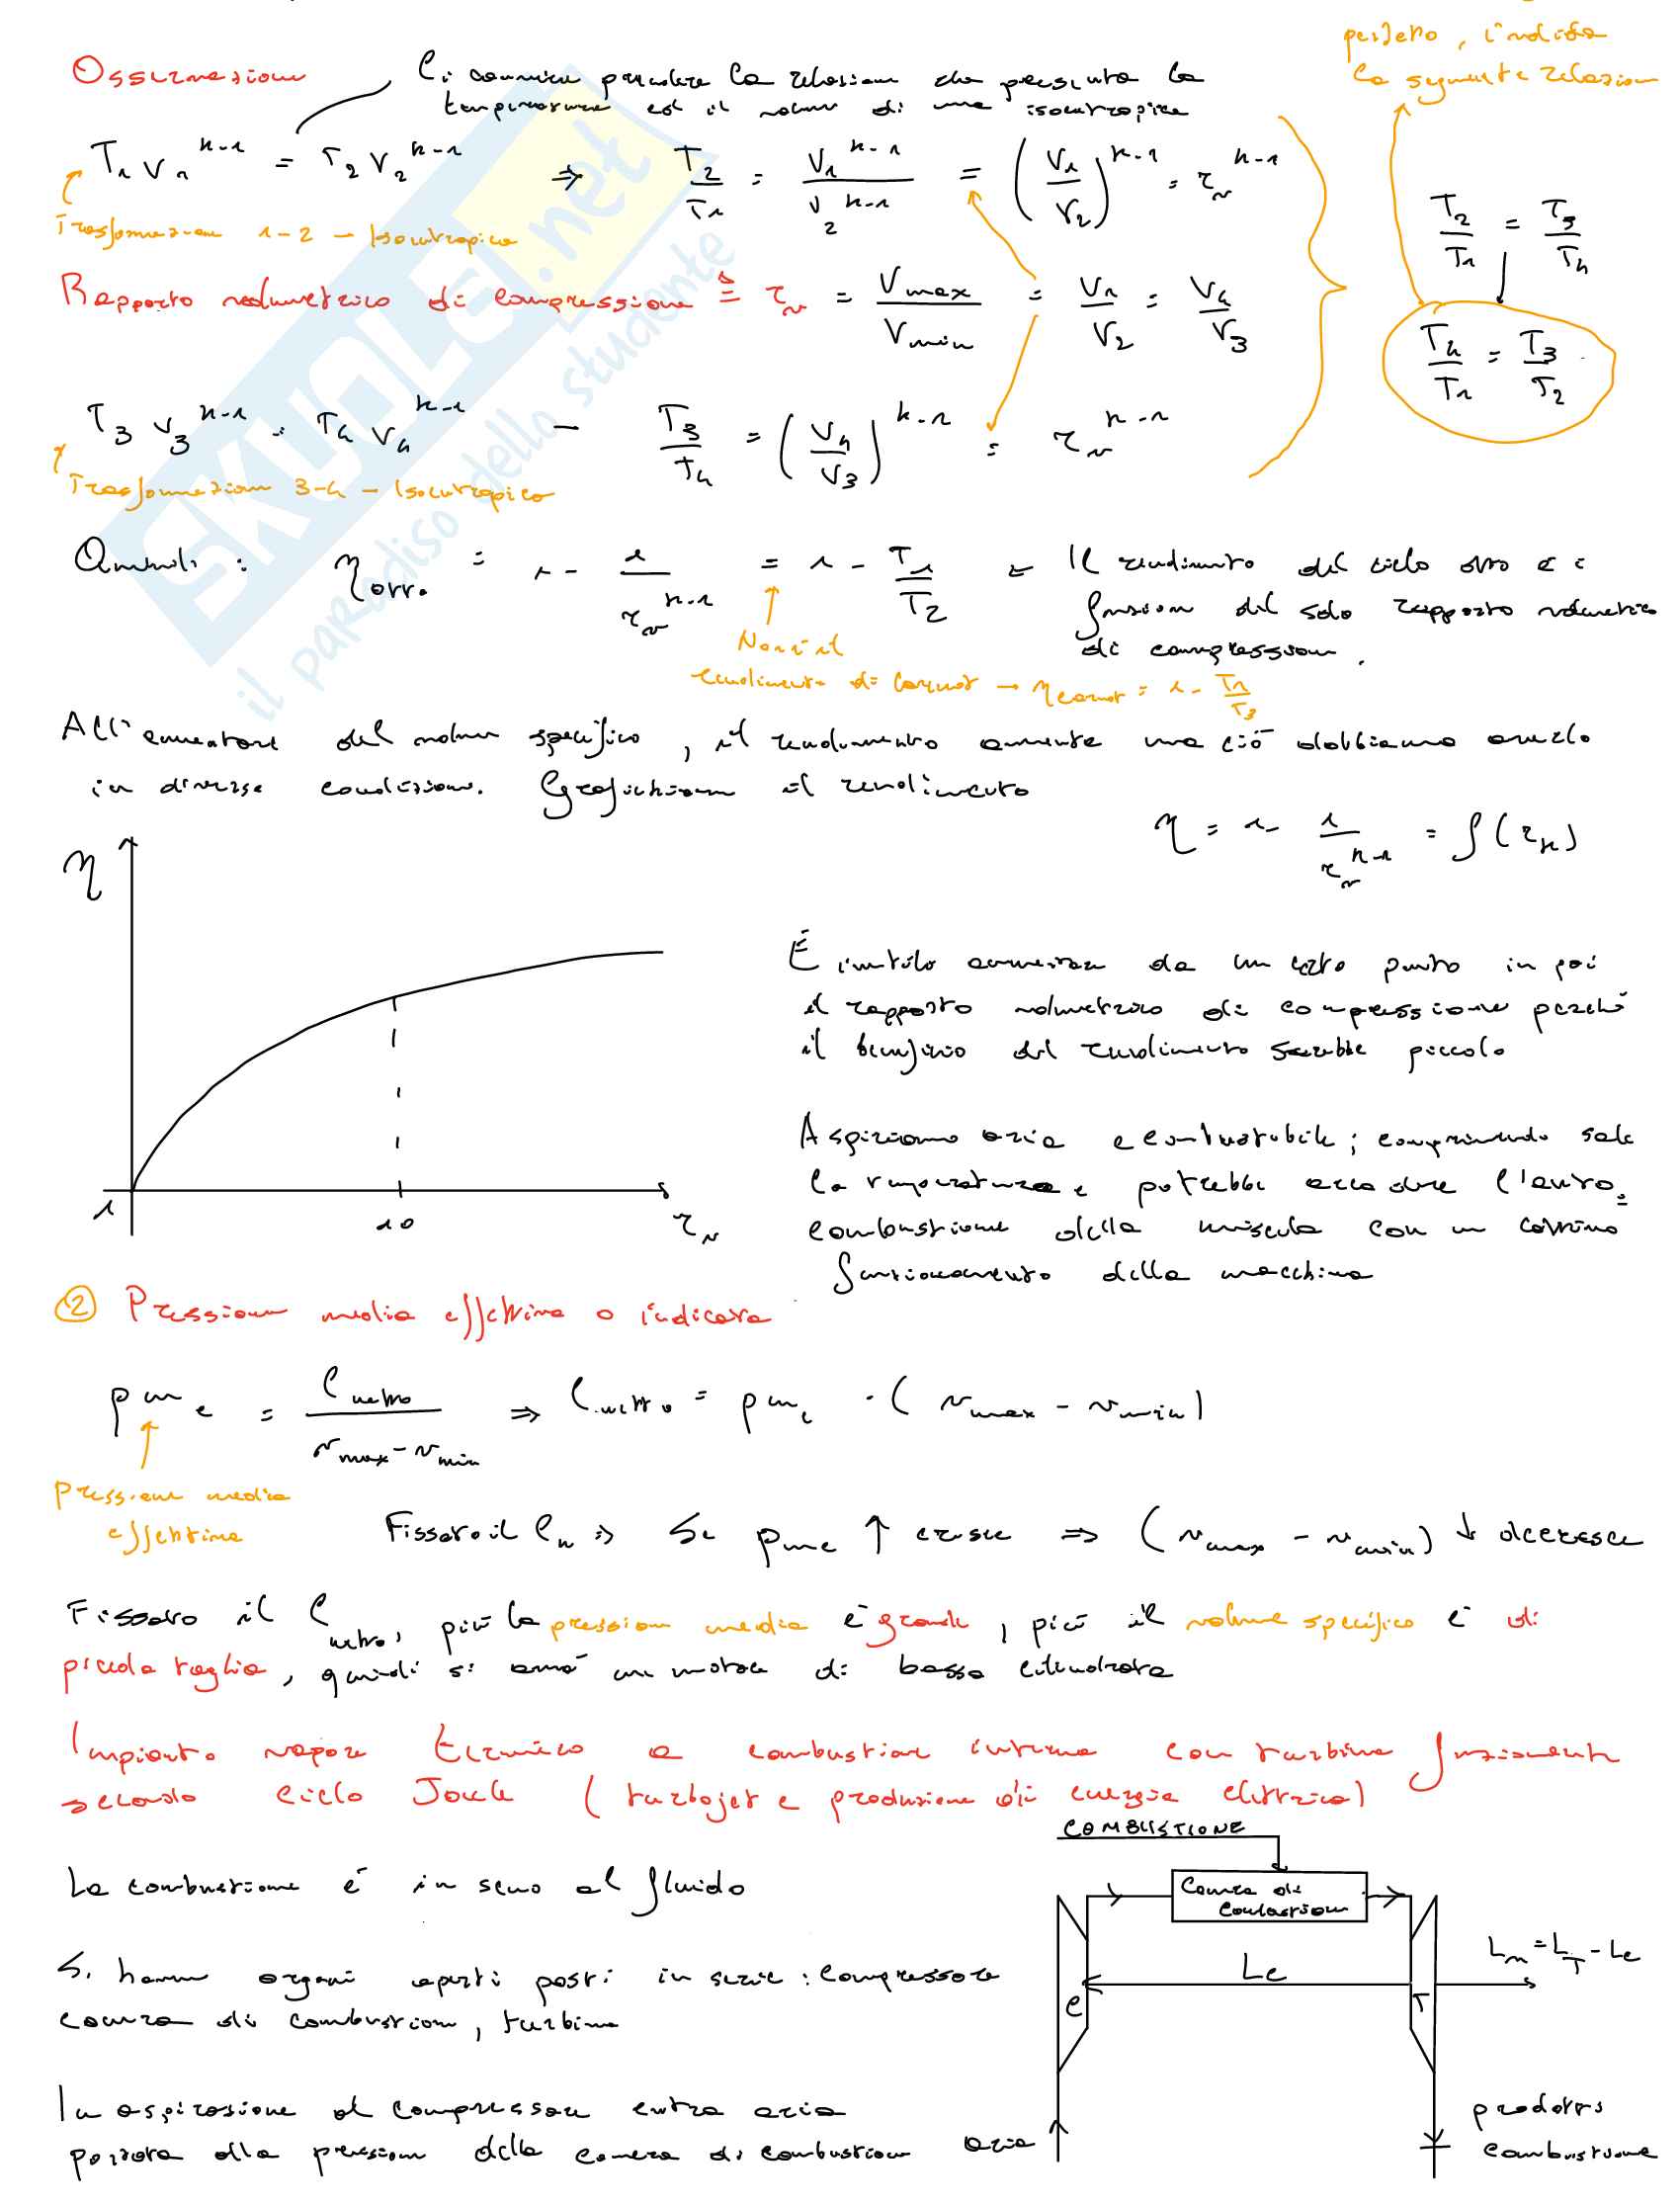 perfetto, indica
la seguente relazione
Osservazione
Ci conviene prendere la relazione che presenta la
temperatura ed il volume di una isoentropica
T₁ V₁^(k-1) = T₂ V₂^(k-1) ⇒ T₂/T₁ = V₁^(k-1)/V₂^(k-1) = (V₁/V₂)^(k-1) = r_v^(k-1)
Trasformazione 1-2 - Isoentropica
T₂/T₁ = T₃/T₄
Rapporto volumetrico di compressione ≜ r_v = Vmax/Vmin = V₁/V₂ = V₄/V₃
T₄/T₁ = T₃/T₂
T₃ V₃^(k-1) = T₄ V₄^(k-1) — T₃/T₄ = (V₄/V₃)^(k-1) = r_v^(k-1)
Trasformazione 3-4 - Isoentropica
Quindi: η_OTTO = 1 - 1/r_v^(k-1) = 1 - T₁/T₂ = Il rendimento del ciclo otto è
funzione del solo rapporto volumetrico
di compressione.
Non è il
rendimento di Carnot → η carnot = 1 - T₁/T₃
All'aumentare del volume specifico, il rendimento aumenta ma ciò dobbiamo averlo
in diverse condizioni. Grafichiamo il rendimento
η = 1 - 1/r_v^(k-1) = f(r_k)
η
È inutile aumentare da un certo punto in poi
il rapporto volumetrico di compressione perché
il beneficio del rendimento sarebbe piccolo
Aspiriamo aria e combustibile; comprimendo sale
la temperatura e potrebbe accadere l'auto-
combustione della miscela con un cattivo
funzionamento della macchina
1 10 r_v
② Pressione media effettiva o indicata
pm e = l netto / (v max - v min) ⇒ l netto = pm e · (v max - v min)
Pressione media
effettiva
Fissato il l n ⇒ Se pme ↑ cresce ⇒ (v max - v min) ↓ decresce
Fissato il l netto, più la pressione media è grande, più il volume specifico è di
piccola taglia, quindi si avrà un motore di bassa cilindrata
Impianto vapore termico a combustione interna con turbina funzionante
secondo ciclo Joule (turbojet e produzione di energia elettrica)
COMBUSTIONE
La combustione è in seno al fluido
Camera di
combustione
Si hanno organi aperti posti in serie: compressore
camera di combustione, turbina
Lc
C
T
Ln = LT - Lc
In aspirazione al compressore entra aria
portata alla pressione della camera di combustione
aria
prodotti
combustione
SKUOLA.net
il paradiso dello studente